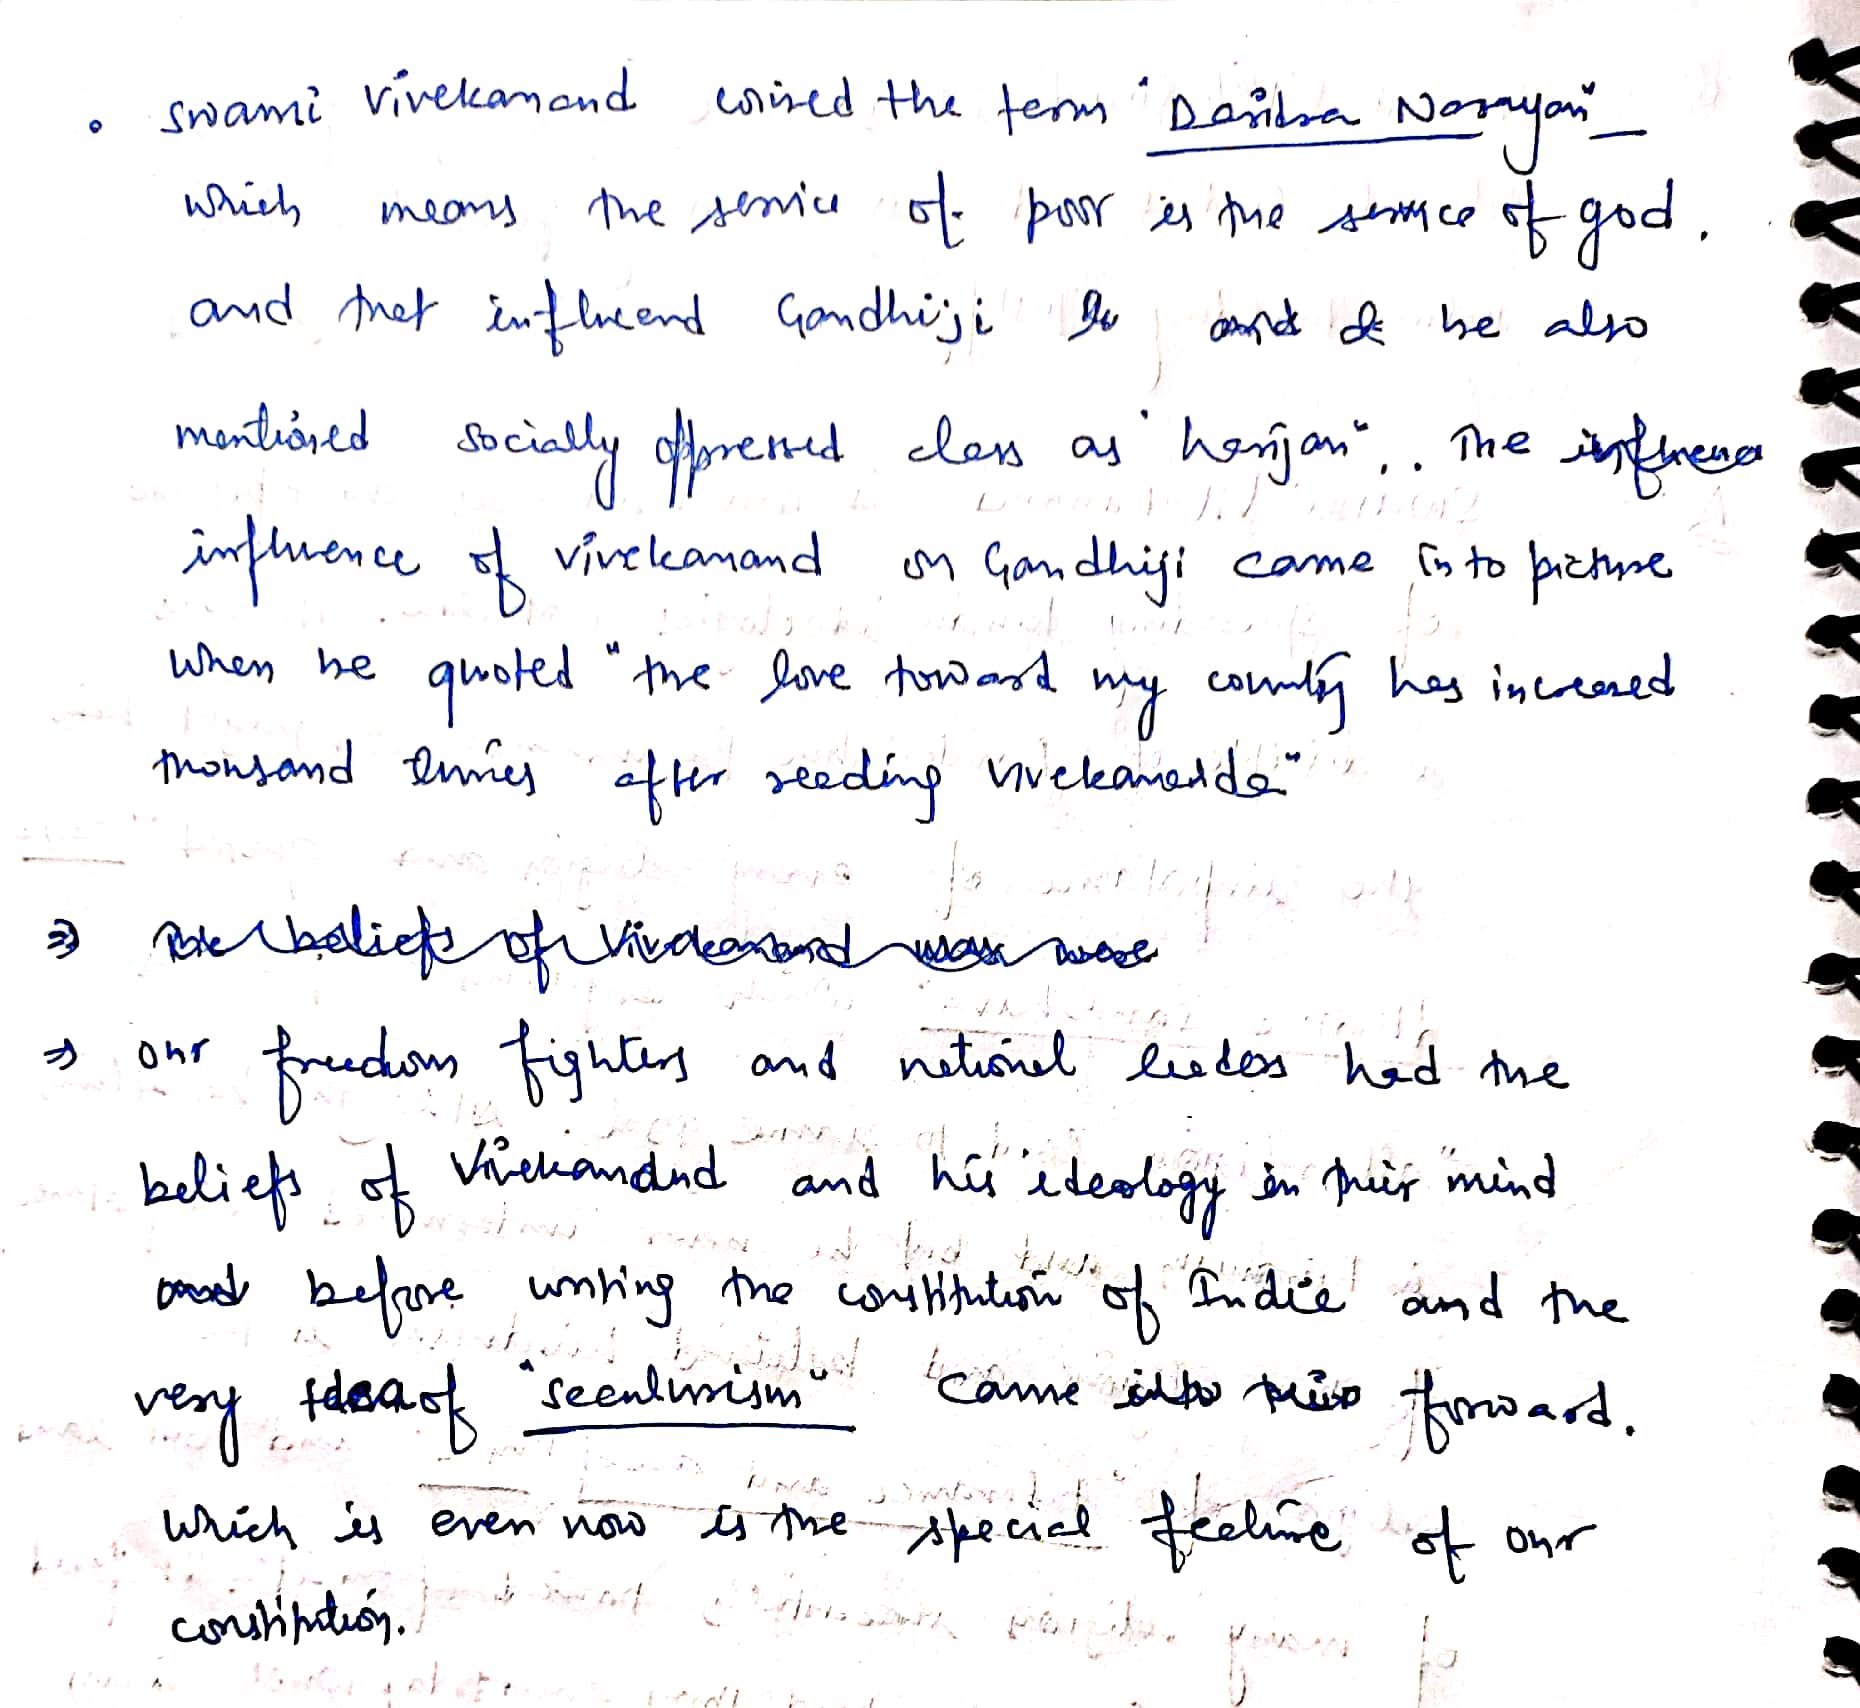 • Swami Vivekanand coined the term "Daridra Narayan"
which means the service of poor is the service of god.
and that influend Gandhiji and he also
mentioned socially oppressed class as "harijan". The
influence of Vivekanand on Gandhiji came into picture
when he quoted "the love toward my country has increased
thousand times after reading Vivekananda"
⇒ The beliefs of Vivekanand was were
⇒ our freedom fighters and national leaders had the
beliefs of Vivekanand and his ideology in their mind
and before writing the constitution of India and the
very idea of "secularism" came into their forward.
which is even now is the special feature of our
constitution.